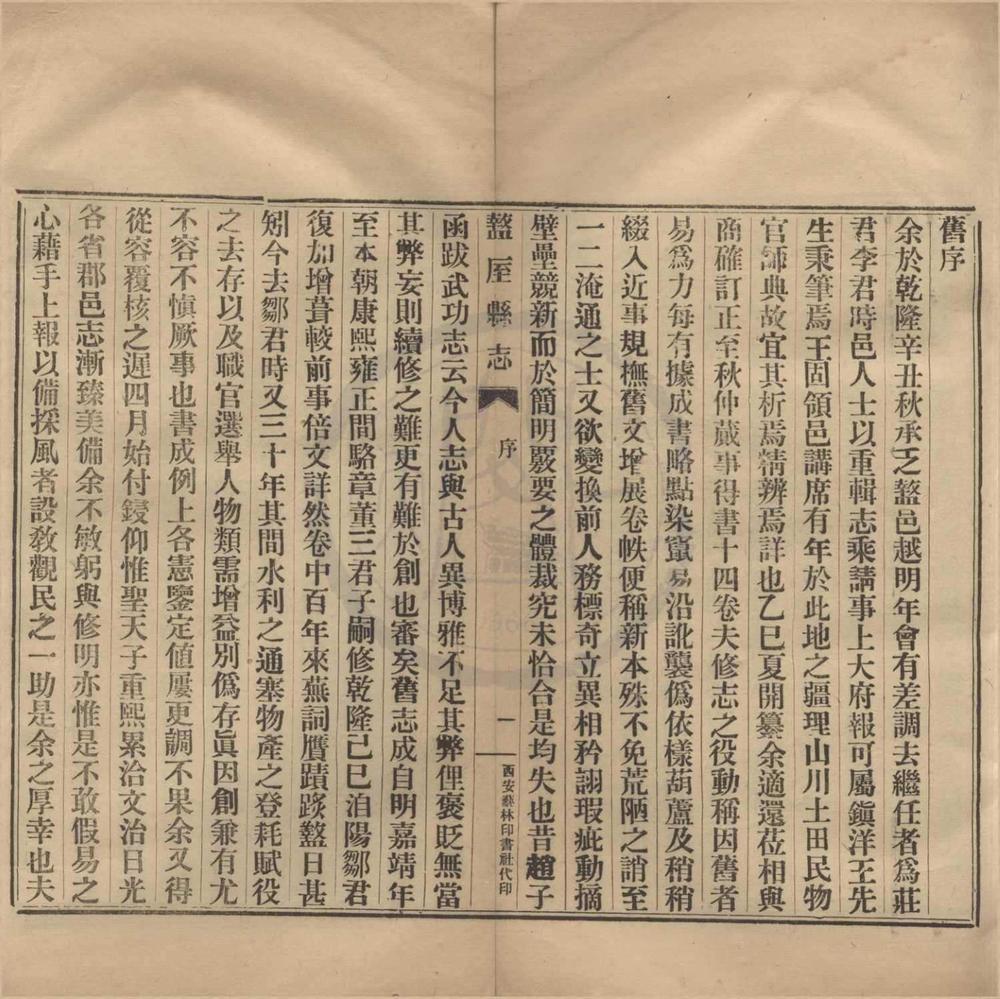 舊序
余於乾隆辛丑秋承乏盩邑越明年會有差調去繼任者爲莊
君李君時邑人士以重輯志乘請事上大府報可屬鎭洋王先
生秉筆焉王固領邑講席有年於此地之疆理山川土田民物
官師典故宜其析焉精辨焉詳也乙巳夏開纂余適還莅相與
商確訂正至秋仲蕆事得書十四卷夫修志之役動稱因舊者
易爲力每有據成書略點染竄易沿訛襲僞依樣葫蘆及稍稍
綴入近事規橅舊文增展卷帙便稱新本殊不免荒陋之誚至
一二淹通之士又欲變換前人務標奇立異相矜詡瑕疵動摘
壁壘競新而於簡明覈要之體裁究未恰合是均失也昔趙子
盩厔縣志
序
一
西安藝林印書社代印
函跋武功志云今人志與古人異博雅不足其弊俚褒貶無當
其弊妄則續修之難更有難於創也審矣舊志成自明嘉靖年
至本朝康熙雍正間駱章董三君子嗣修乾隆己巳洎陽鄒君
復加增葺較前事倍文詳然卷中百年來蕪詞贋蹟踳盭日甚
矧今去鄒君時又三十年其間水利之通塞物產之登耗賦役
之去存以及職官選舉人物類需增益別僞存眞因創兼有尤
不容不愼厥事也書成例上各憲鑒定値屢更調不果余又得
從容覆核之遲四月始付鋟仰惟聖天子重熙累洽文治日光
各省郡邑志漸臻美備余不敏躬與修明亦惟是不敢假易之
心藉手上報以備採風者設敎觀民之一助是余之厚幸也夫